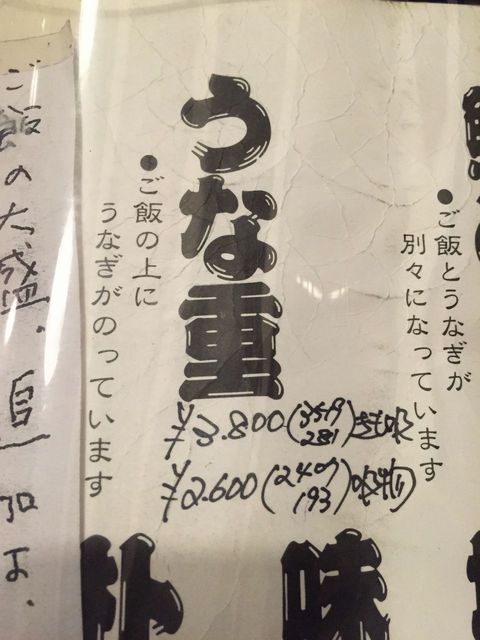 ●ご飯とうなぎが
別々になっています
うな重
●ご飯の上に
うなぎがのっています
¥3.800(3519 281)きも吸
¥2.600(2407 193)吸物
ご飯の大盛、
味